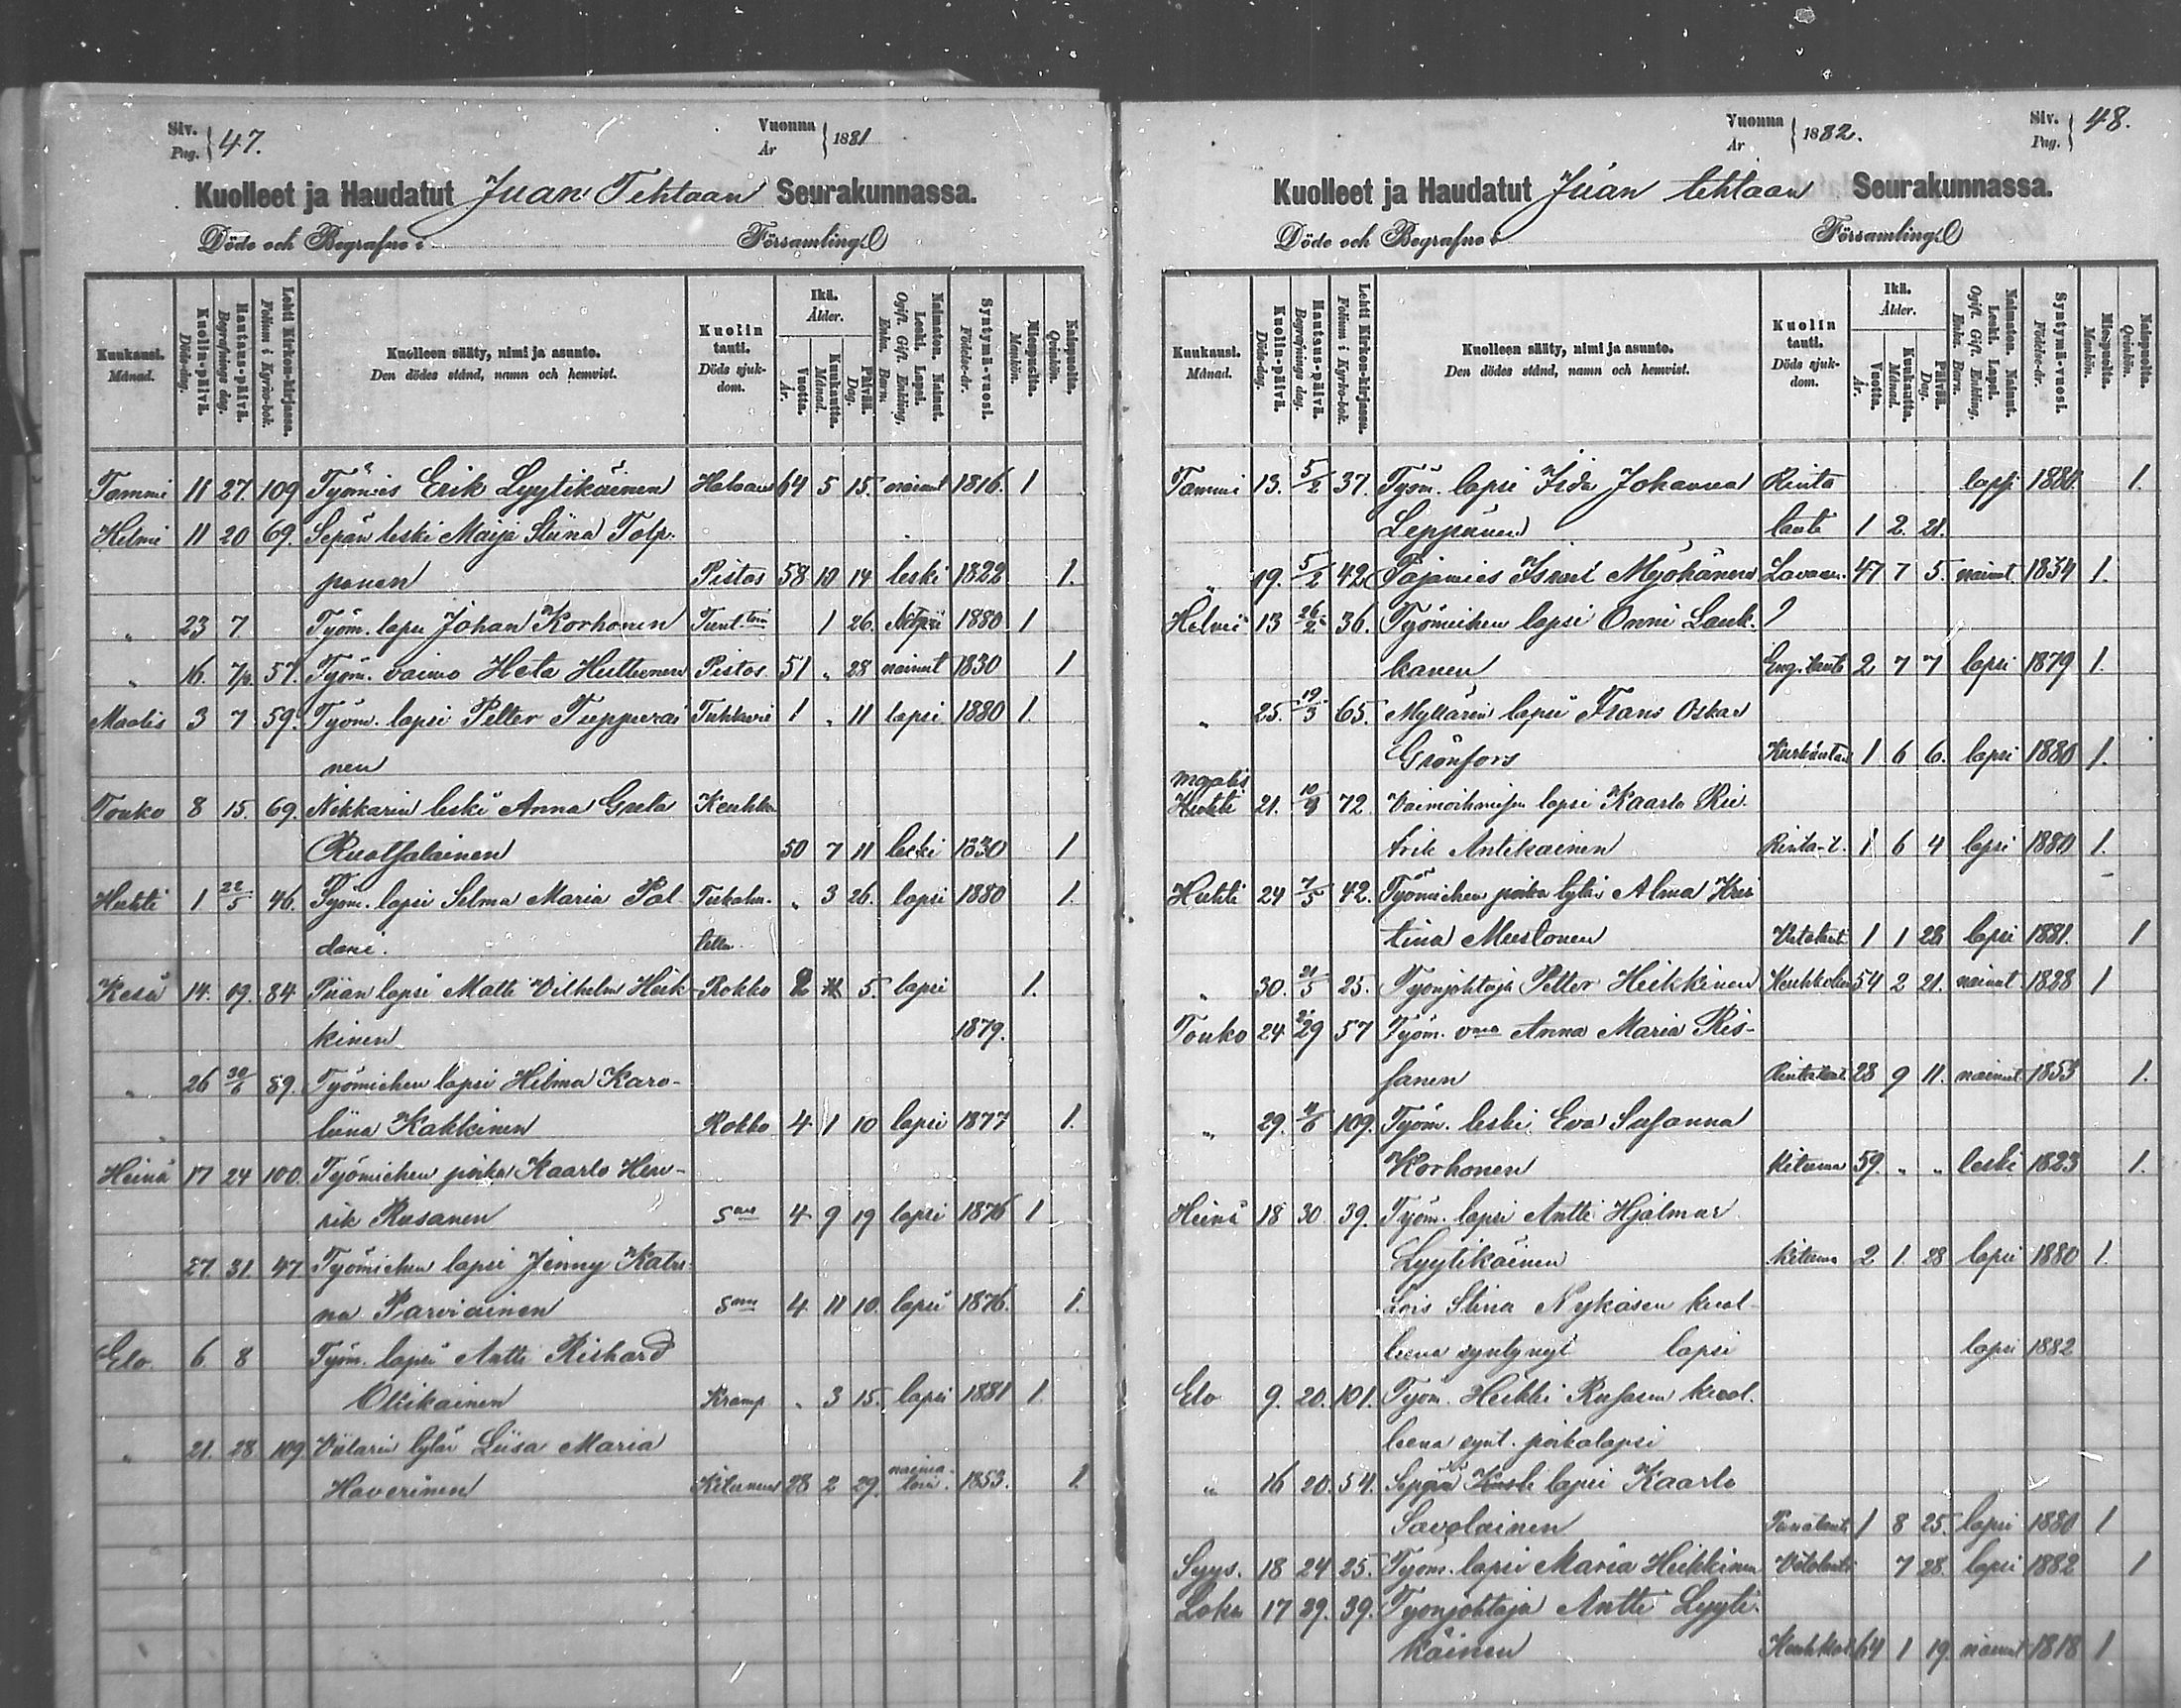 Siv. Pag. 47.
Vuonna År 1881
Kuolleet ja Haudatut Juan Tehtaan Seurakunnassa.
Döde och Begrafne i Församling
Kuukausi. Månad.
Kuolin-päivä. Döds-dag.
Hautaus-päivä. Begrafnings dag.
Lehti Kirkon-kirjassa. Folium i Kyrko-bok.
Kuolleen sääty, nimi ja asunto. Den dödes stånd, namn och hemvist.
Kuolin tauti. Döds sjuk-dom.
Ikä. Ålder.
Vuotta. År.
Kuukautta. Månad.
Päivää. Dag.
Naimaton. Nainut. Leski. Lapsi. Ogift. Gift. Enkling. Enka. Barn.
Syntymä-vuosi. Födelse-år.
Miespuolta. Mankön.
Naispuolta. Qvinkön.
Tammi 11 27. 109 Työmies Erik Lyytikäinen 64 5 15. nainut 1816. 1
Helmi 11 20 69. Sepän leski Maija Stiina Tolp-
panen Pistos 58 10 14 leski 1822 1.
" 23 7. Työm. lapsi Johan Korhonen 1 26. 1880 1
" 16. 57. Työm. vaimo Heta Huttunen Pistos. 51 " 28 nainut 1830 1
Maalis 3 7 59. Työm. lapsi Petter Tuppurai Tuhkuri 1 " 11 lapsi 1880 1.
nen
Touko 8 15. 69. Nikkarin leski Anna Greta Keuhko
Ruotsalainen 50 7 11 leski 1830 1
Huhti 1 22/5 46. Työm. lapsi Selma Maria Pal " 3 26. lapsi 1880 1.
dani.
Kesä 14. 19. 84 Piian lapsi Matti Vilhelm Heik- Rokko 2 5. lapsi 1.
kinen 1879.
" 26 30/6 89. Työmiehen lapsi Hilma Karo-
liina Kakkinen Rokko 4 1 10 lapsi 1877 1.
Heinä 17 24 100. Työmiehen poika Kaarlo Hen-
rik Rusanen sama 4 9 19 lapsi 1876 1
27. 31. 47. Työmiehen lapsi Jenny Katri-
na Parviainen sama 4 11 10. lapsi 1876. 1.
Elo 6 8 Työm. lapsi Antti Rikhard
Ollikainen Kramp " 3 15. lapsi 1881 1.
" 21. 28 109 Viilarin tytär Liisa Maria
Haverinen Kitumus 28 2 29. naima-toin. 1853. 1.
Vuonna År 1882.
Siv. Pag. 48.
Kuolleet ja Haudatut Juan tehtaan Seurakunnassa.
Döde och Begrafne i Församling
Kuukausi. Månad.
Kuolin-päivä. Döds-dag.
Hautaus-päivä. Begrafnings dag.
Lehti Kirkon-kirjassa. Folium i Kyrko-bok.
Kuolleen sääty, nimi ja asunto. Den dödes stånd, namn och hemvist.
Kuolin tauti. Döds sjuk-dom.
Ikä. Ålder.
Vuotta. År.
Kuukautta. Månad.
Päivää. Dag.
Naimaton. Nainut. Leski. Lapsi. Ogift. Gift. Enkling. Enka. Barn.
Syntymä-vuosi. Födelse-år.
Miespuolta. Mankön.
Naispuolta. Qvinkön.
Tammi 13. 5/2 37. Työm. lapsi Iida Johanna Rinta lapsi 1880. 1.
Leppänen tauti 1 2. 21.
" 19. 5/2 42 Pajamies Israel Myöhänen 47 7 5. nainut 1834 1.
Helmi 13 26/2 36. Työmiehen lapsi Onni Lauk- ?
kanen Eng. tauti 2 7 7 lapsi 1879 1.
" 25. 19/3 65. Myllärin lapsi Frans Oskar
Grönfors 1 6 6. lapsi 1880 1.
maalis
Huhti 21. 72 Vaimoihmisen lapsi Kaarlo
Antikainen Rinta-t. 1 6 4 lapsi 1880 1.
Huhti 24 7/5 42. Työmiehen poika tytär Alma Kris
tina Mustonen 1 1 28 lapsi 1881. 1
" 30. 21/5 25. Työnjohtaja Petter Heikkinen 54 2 21. nainut 1828 1
Touko 24 29 57 Työm. vmo Anna Maria Ris-
sanen Rintataut. 28 9 11. nainut 1853 1.
" 29. 4/6 109. Työm. leski Eva Susanna
Korhonen Kituma 59. " " leski 1823 1.
Heinä 18 30 39. Työm. lapsi Antti Hjalmar
Lyytikäinen Kituma 2 1. 28 lapsi 1880 1.
Lois Stina Nykäsen kuol-
leena syntynyt lapsi lapsi 1882
Elo 9. 20. 101. Työm. Heikki Rusasen kuol-
leena synt. poikalapsi
" 16 20. 54. Sepän lapsi Kaarlo
Savolainen 1 8 25. lapsi 1880 1
Syys. 18 24 25. Työm. lapsi Maria Heikkinen 7 28. lapsi 1882 1
Loka 17 29. 39. Työnjohtaja Antti Lyyti-
käinen 64 1 19. nainut 1818 1